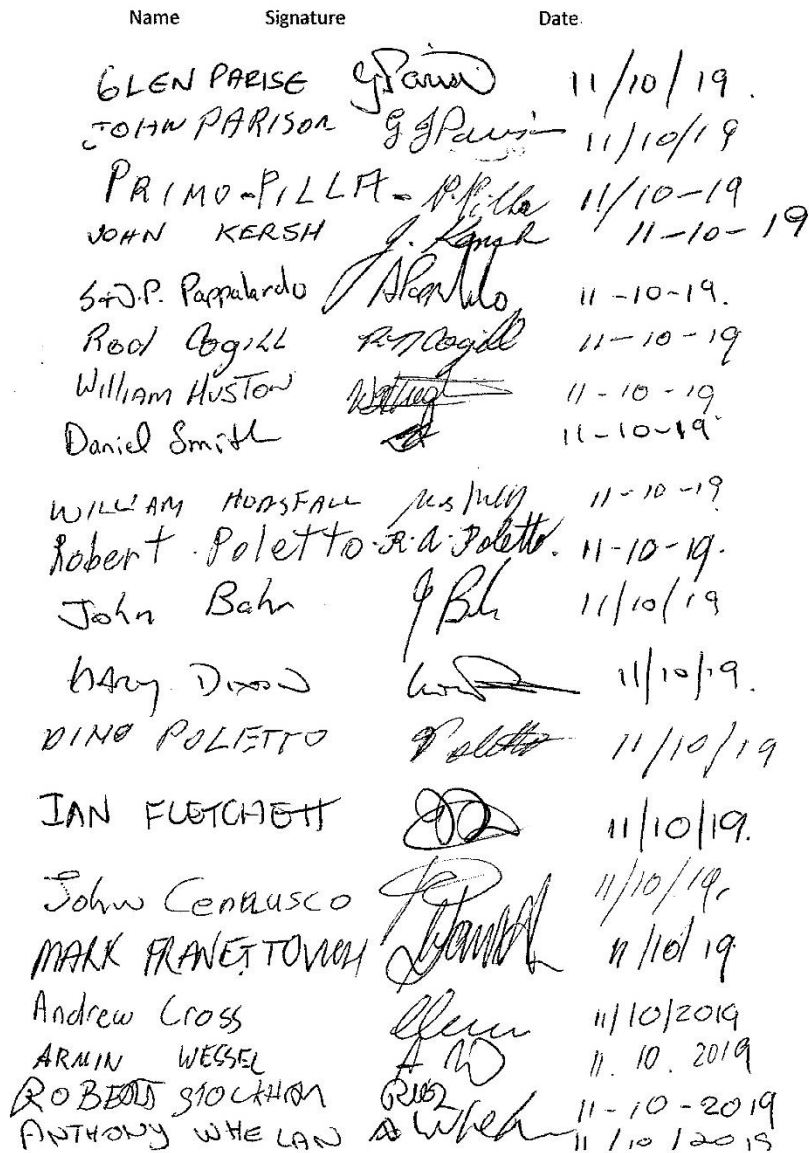 Name Signature Date
GLEN PARISE GParise 11/10/19.
JOHN PARISON G J Paris 11/10/19
PRIMO-PILLA- P.Pilla 11/10-19
JOHN KERSH J. Kersh 11-10-19
S+D.P. Pappalardo APappalardo 11-10-19.
Rod Cogill R Cogill 11-10-19
William HUSTON 11-10-19
Daniel Smith 11-10-19
WILLIAM HORSFALL 11-10-19
Robert Poletto R.A.Poletto. 11-10-19.
John Bahr J Bahr 11/10/19
GARY DIXON 11/10/19.
DINO POLETTO Poletto 11/10/19
IAN FLETCHETT 11/10/19.
John Cerrusco 11/10/19.
MARK FRANETTOVICH 11/10/19
Andrew Cross 11/10/2019
ARMIN WESSEL A W 11.10.2019
ROBERT STOCKHAM 11-10-2019
ANTHONY WHELAN A Whelan 11/10/2019